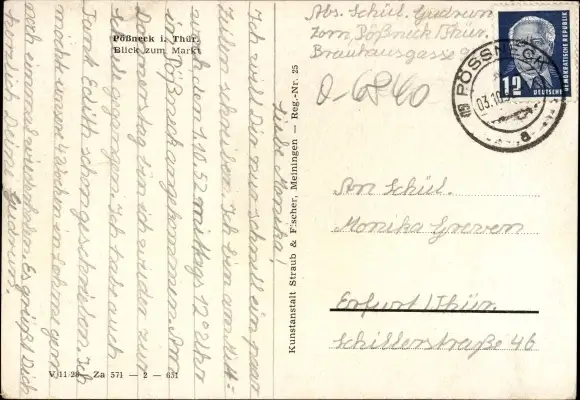 Pößneck i. Thür.
Blick zum Markt
Abs. Schül. Gudrun
Zorn, Pößneck/Thür.
Brauhausgasse 9
O-6840
DEUTSCHE DEMOKRATISCHE REPUBLIK
12
DEUTSCHE POST
PÖSSNECK
03.10.5
a
An Schül.
Monika Greven
Erfurt/Thür.
Schillerstraße 46
Kunstanstalt Straub & Fischer, Meiningen — Reg.-Nr. 25
V 11 28 Za 571 — 2 — 651
Liebe Monika,
Ich will Dir nur schnell ein paar
Zeilen schreiben. Ich bin am Mitt-
woch, den 1.10.52 mittags 12⁰² Uhr
in Pößneck angekommen. Am
Donnerstag bin ich wieder zur
Schule gegangen. Ich habe auch
Tante Edith schon geschrieben. Ich
möchte unsre 4 Wochen in Lehme gern
noch einmal wiederholen. Es grüßt Dich
herzlich Deine Gudrun.